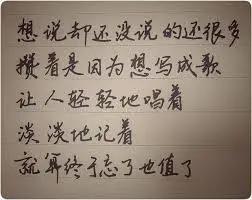 想说却还没说的还很多
攒着是因为想写成歌
让人轻轻地唱着
淡淡地记着
就算终于忘了也值了